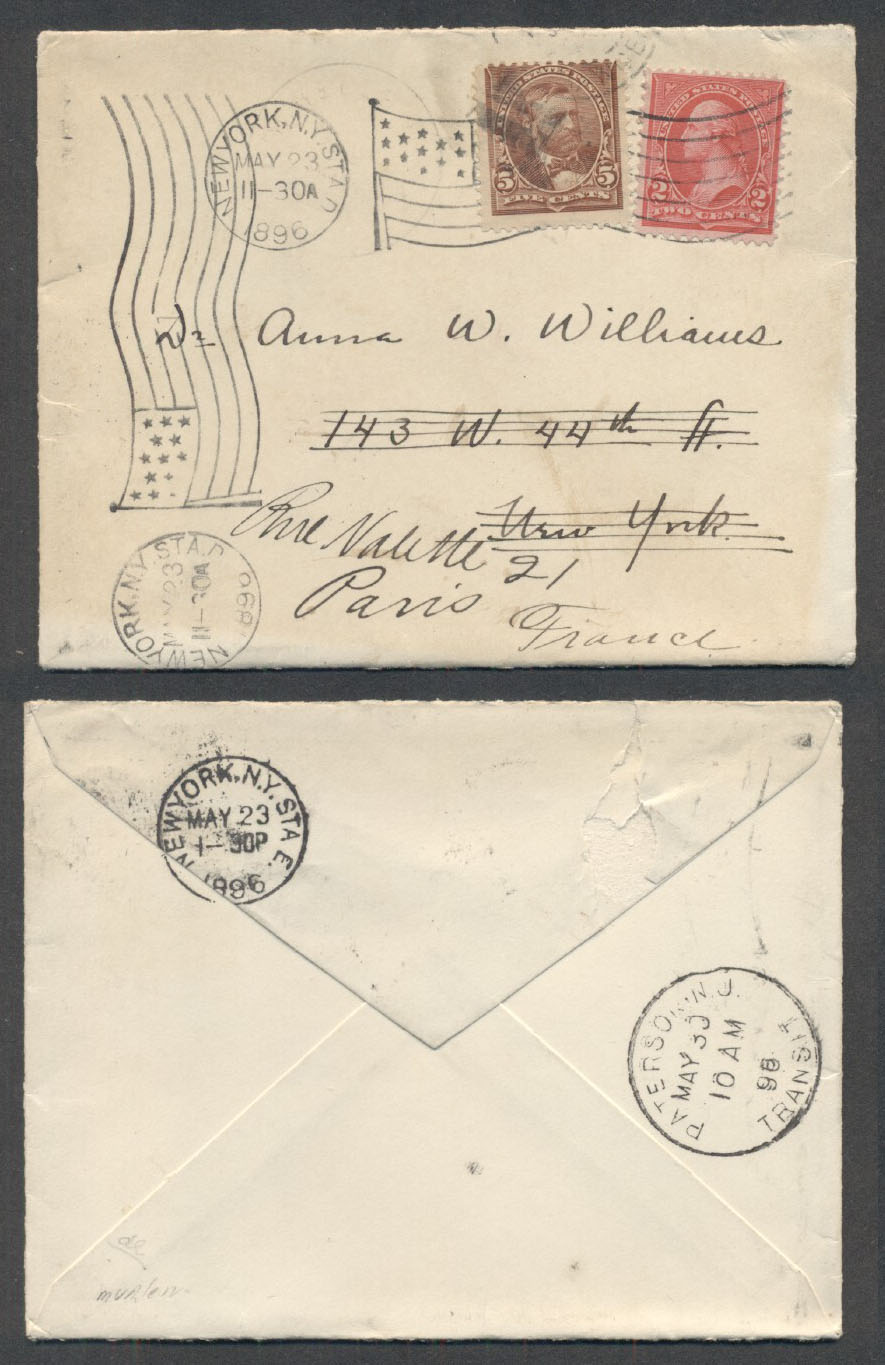 NEW YORK, N.Y. STA. D
MAY 23
11-30A
1896
UNITED STATES POSTAGE
5 5
FIVE CENTS
UNITED STATES POSTAGE
2 2
TWO CENTS
Dr Anna W. Williams
143 W. 44th St.
New York
Rue Valette 21
Paris
France
NEW YORK, N.Y. STA. D
MAY 23
11-30A
1896
NEW YORK, N.Y. STA. E.
MAY 23
1-30P
1896
PATERSON, N.J.
MAY 30
10 AM
96
TRANSIT